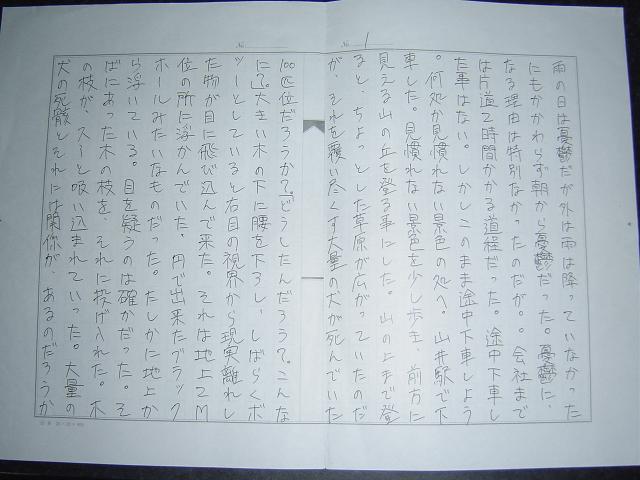 No. 1
雨の日は憂鬱だが外は雨は降っていなかった
にもかかわらず朝から憂鬱だった。憂鬱に、
なる理由は特別なかったのだが。。会社まで
は片道2時間かかる道程だった。途中下車し
た事はない。しかしこのまま途中下車しよう
。何処か見慣れない景色の処へ。山井駅で下
車した。見慣れない景色を少し歩き、前方に
見える山の丘を登る事にした。山の上まで登
ると、ちょっとした草原が広がっていたのだ
が、それを覆い尽くす大量の犬が死んでいた
No.
100匹位だろうか?どうしたんだろう?。こんな
に?。大きい木の下に腰を下ろし、しばらくボ
ツーとしていると右目の視界から現実離れし
た物が目に飛び込んで来た。それは地上2M
位の所に浮かんでいた。円で出来たブラック
ホールみたいなものだった。たしかに地上か
ら浮いている。目を疑うのは確かだった。そ
ばにあった木の枝を、それに投げ入れた。木
の枝が、スーと吸い込まれていった。大量の
犬の死骸とそれには関係が、あるのだろうか